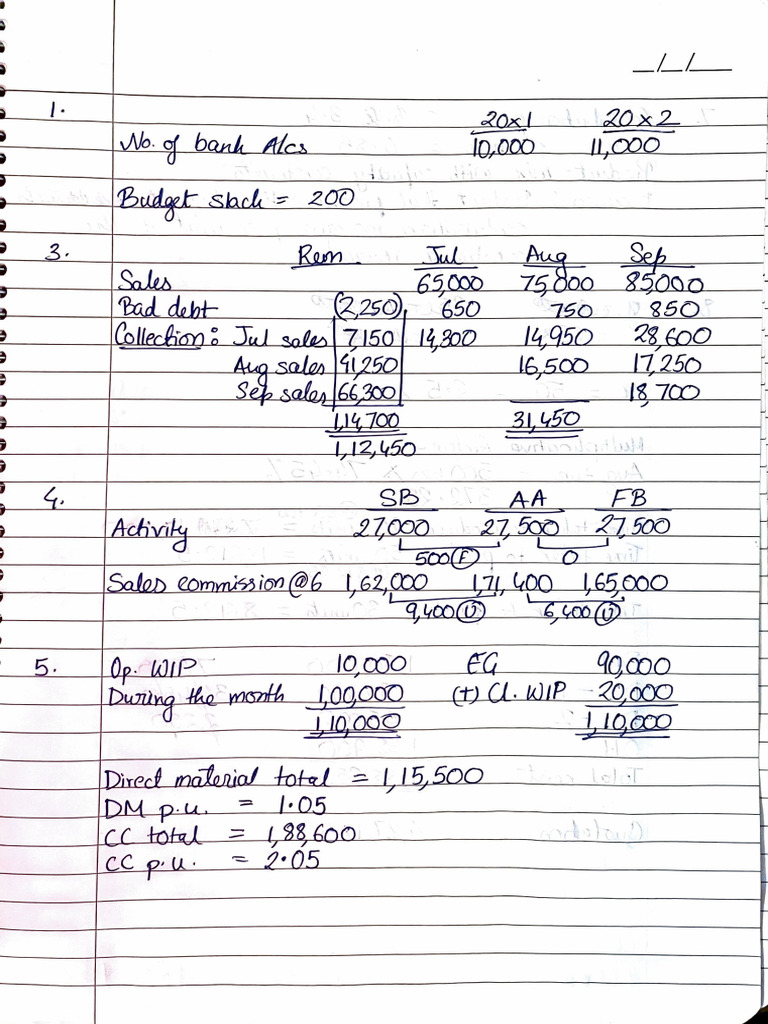 _/_/__
1. 20x1 20x2
No. of bank A/cs 10,000 11,000
Budget slack = 200
3. Rem Jul Aug Sep
Sales 65,000 75,000 85,000
Bad debt (2,250) 650 750 850
Collection: Jul sales 7,150 14,300 14,950 28,600
Aug sales 41,250 16,500 17,250
Sep sales 66,300 18,700
1,14,700 31,450
1,12,450
4. SB AA FB
Activity 27,000 27,500 27,500
500 (F) 0
Sales commission @6 1,62,000 1,71,400 1,65,000
9,400 (U) 6,400 (U)
5. Op. WIP 10,000 EG 90,000
During the month 1,00,000 (+) Cl. WIP 20,000
1,10,000 1,10,000
Direct material total = 1,15,500
DM p.u. = 1.05
CC total = 1,88,600
CC p.u. = 2.05